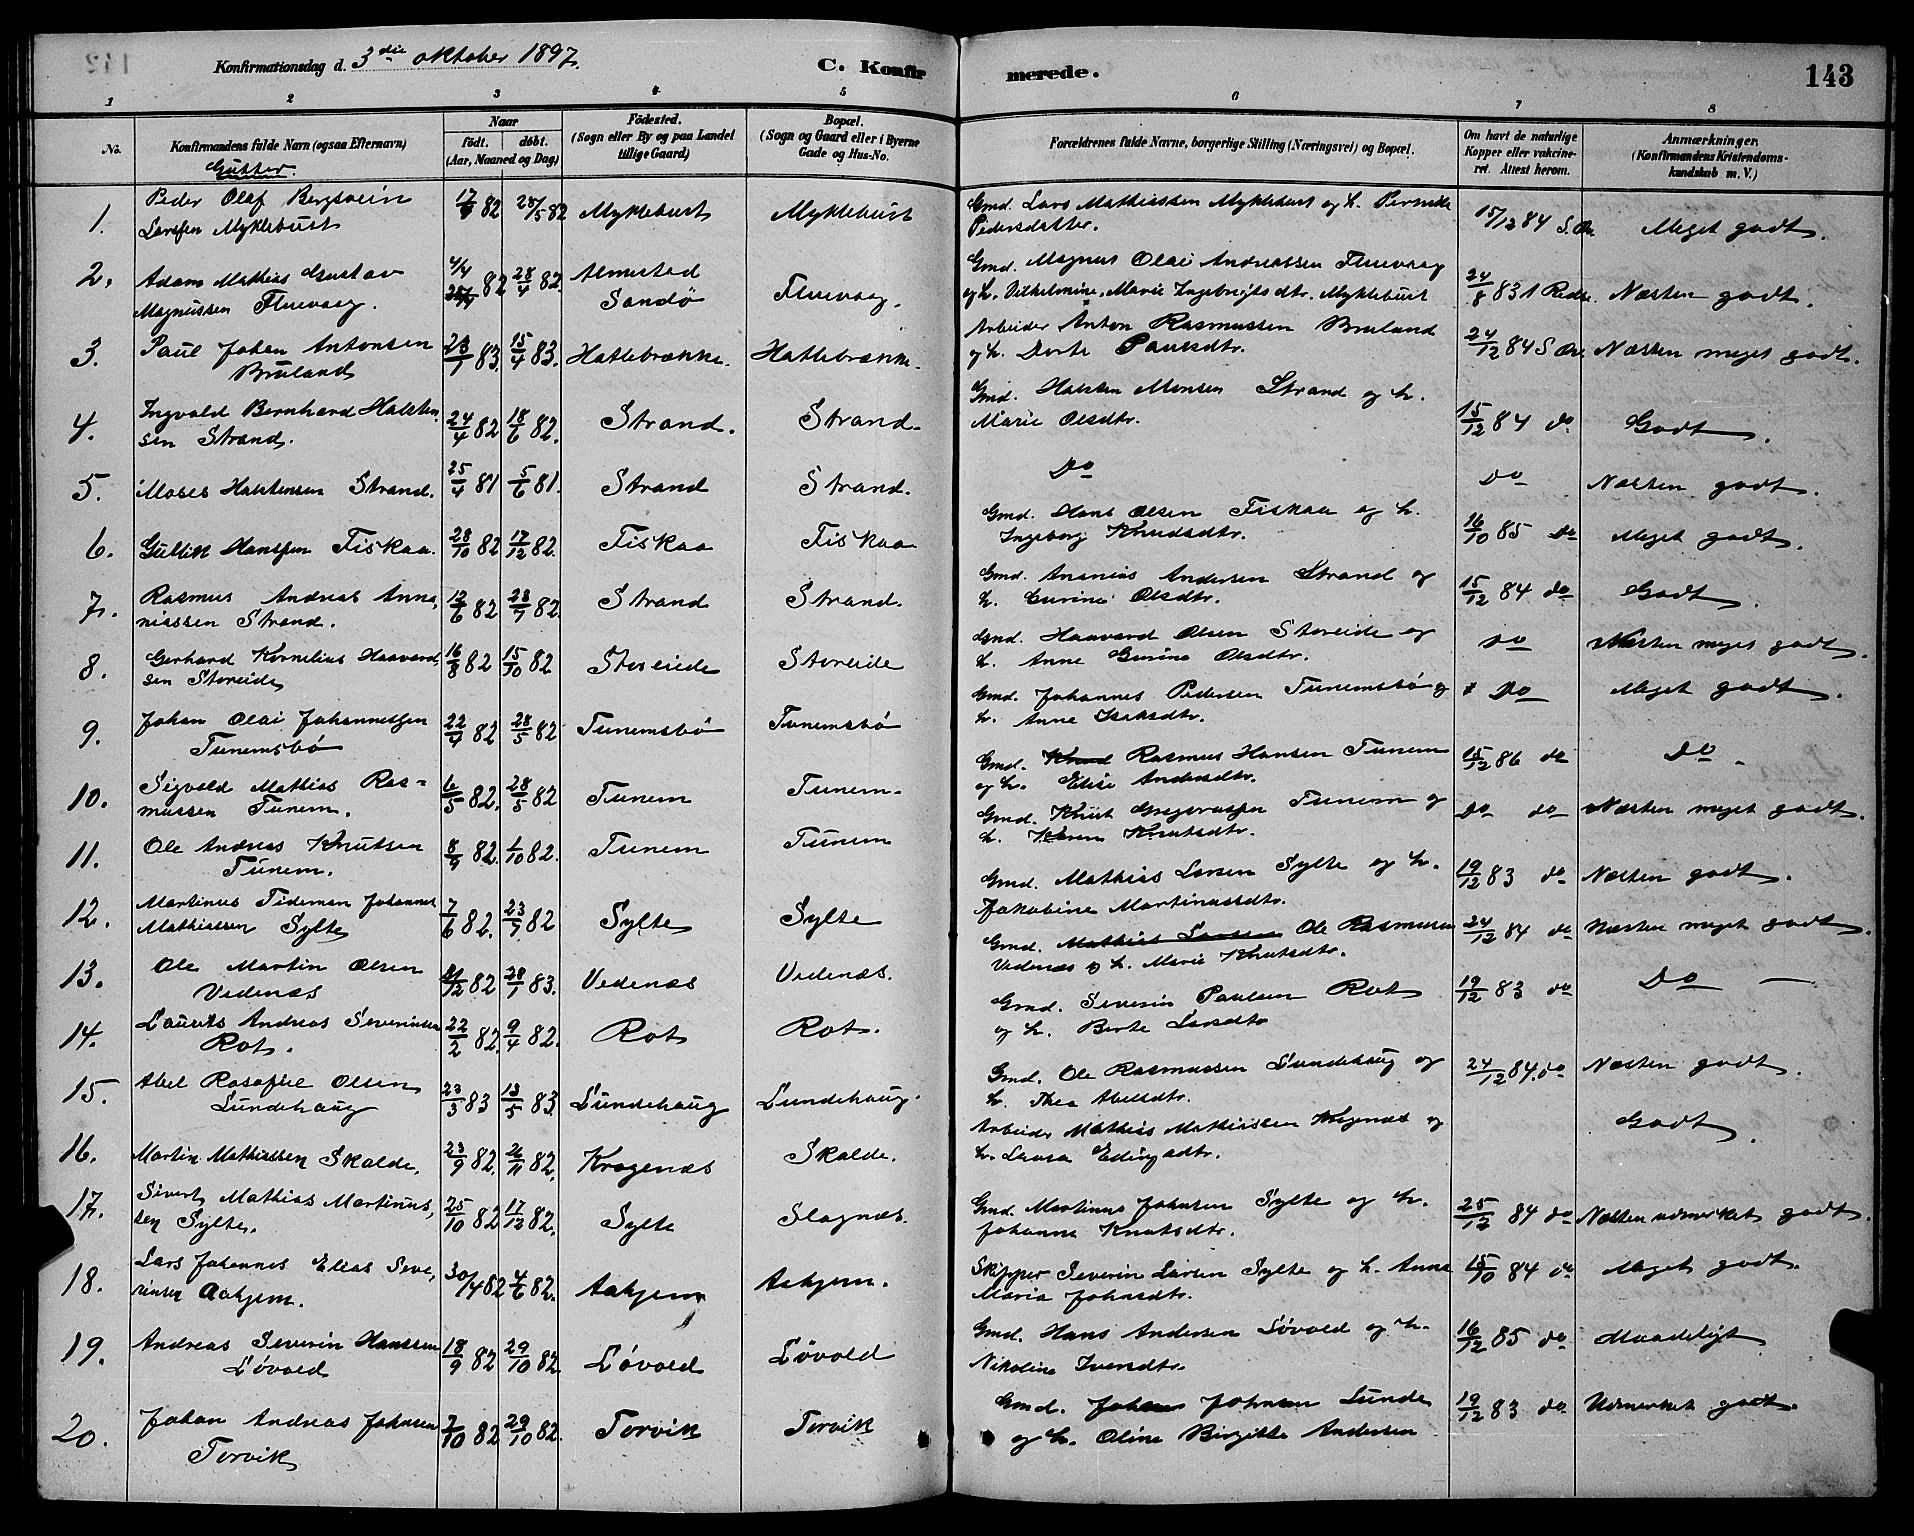 Konfirmationsdag d. 3die oktober 1897. C. Konfirmerede. 143
1 2 3 4 5 6 7 8
No. Konfirmandens fulde Navn (ogsaa Efternavn) Naar födt. döbt. (Aar, Maaned og Dag) Födested. (Sogn eller By og paa Landet tillige Gaard) Bopæl. (Sogn og Gaard eller i Byerne Gade og Hus-No. Forældrenes fulde Navne, borgerlige Stilling (Næringsvei) og Bopæl. Om havt de naturlige Kopper eller vakcineret. Attest herom. Anmærkninger. (Konfirmandens Kristendomskundskab m. V.)
Gutter.
1. Peder Olaf Bergsvein Larssen Myklebust 82 28/5 82 Myklebust Myklebust Gmd. Lars Mathiassen Myklebust og h. Pernille Pedersdatter. 15/12 84 Meget godt.
2. Adam Mathias Gustav Magnussen Fluevaag. 4/4 82 28/4 82. Almestad Sandö Fluevaag. Gmd. Magnus Olai Andreassen Fluevaag og h. Vilhelmine Marie Ingebrigtsdtr. Myklebust 24/8 83 Næsten godt.
3. Paul Johan Antonsen Bruland 23/1 83. 15/4 83. Hatlebrække. Hatlebrække. Arbeider Anton Rasmussen Bruland og h. Dorte Paulsdtr. 24/12 84 Næsten meget godt.
4. Ingvald Bernhard Halstensen Strand. 24/4 82 18/6 82. Strand. Strand. Gmd. Halsten Monsen Strand og h. Marie Olsdtr. 15/12 84 do Godt.
5. Moses Halstensen Strand. 25/4 81 5/6 81. Strand Strand. Do Do Næsten godt.
6. Gullik Hanssen Fiskaa. 28/10 82 17/12 82. Fiskaa Fiskaa Gmd. Hans Olsen Fiskaa og h. Ingeborg Knudsdtr. 16/10 85 do Meget godt.
7. Rasmus Andreas Annaniassen Strand. 12/6 82 23/7 82 Strand Strand. Gmd. Ananias Andersen Strand og h. Gurine Olsdtr. 15/12 84 do Godt.
8. Gerhard Kornelius Haavardsen Storeide 16/8 82 15/10 82 Storeide Storeide Gmd. Haavard Olsen Storeide og h. Anne Gurine Olsdtr. Do Næsten meget godt.
9. Johan Olai Johannessen Tunemsbö 22/4 82 28/5 82 Tunemsbö Tunemsbö Gmd. Johannes Pedersen Tunemsbö og h. Anne Isaksdtr. Do Meget godt.
10. Sigvald Mathias Rasmussen Tunem. 6/5 82. 28/5 82 Tunem Tunem. Gmd. Knud Rasmus Hansen Tunem og h. Elise Andersdtr. 15/12 86 do Do
11. Ole Andreas Knutsen Tunem. 8/9 82. 1/10 82. Tunem Tunem Gmd. Knut Gregoriussen Tunem og h. Karen Knutsdtr. Do do Næsten meget godt.
12. Martinus Tideman Johannes Mathiassen Sylte 7/6 82. 23/7 82 Sylte Sylte Gmd. Mathias Larsen Sylte og h. Jakobine Martinusdtr. 19/12 83 do Næsten godt.
13. Ole Martin Olsen Vedenæs 82 28/1 83. Vedenæs Vedenæs. Gmd. Mathias Larsen Ole Rasmusen Vedenæs og h. Marie Knutsdtr. 24/12 84 do Næsten meget godt.
14. Laurits Andreas Severinsen Rot. 22/2 82. 9/4 82. Rot Rot. Gmd. Severin Paulsen Rot og h. Berte Larsdtr 19/12 83 do Do
15. Abel Rasafiel Olsen Lundehaug 23/3 83 13/5 83. Lundehaug Lundehaug. Gmd. Ole Rasmussen Lundehaug og h. Thea Abelsdtr. 24/12 84. do Næsten godt.
16. Martin Mathiassen Skalde, 23/9 82. 26/11 82. Kragenæs Skalde. Arbeider Mathias Mathiassen Kragenæs og h. Laura Godt.
17. Sivert Mathias Martinussen Sylte. 25/10 82 17/12 82. Sylte Slagnæs. Gmd. Martinus Johnsen Sylte og h. Johanna Knutsdtr. 25/12 84 do Næsten udmerket godt.
18. Lars Johannes Elias Severinsen Aahjem. 30/4 82 4/6 82. Aahjem Aahjem. Skipper Severin Larsen Sylte og h. Anne Maria Johnsdtr. 15/10 84 do Meget godt.
19. Andreas Severin Hanssen Lövold 18/9 82 29/10 82 Lövold Lövold Gmd. Hans Andersen Lövold og h. Nikoline Iversdtr. 16/12 85 do Maadeligt
20. Johan Andreas Johnsen Torvik 7/10 82 29/10 82. Torvik Torvik Gmd. Johan Johnsen Lunde og h. Oline Birgitte Andersen 19/12 83 do Udmerket godt.